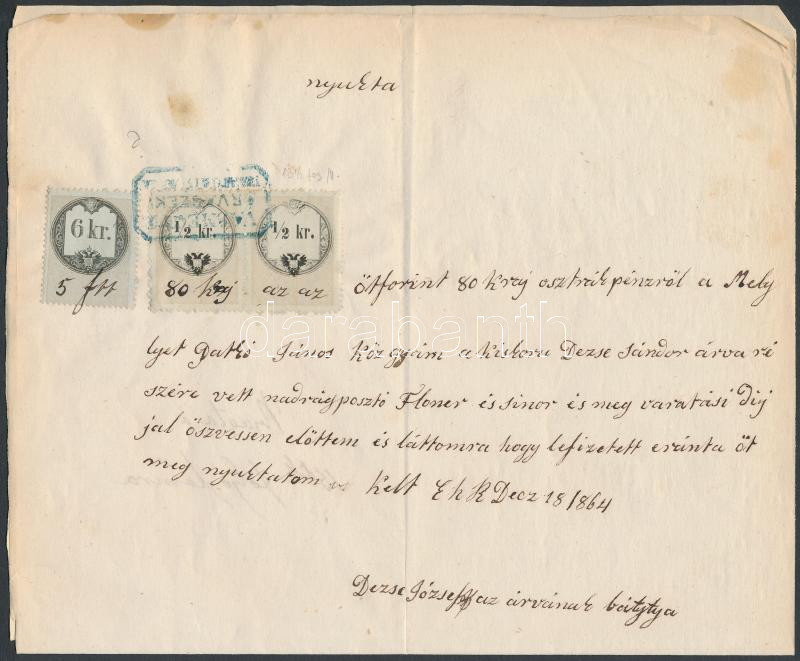 nyukta
6 kr. 1/2 kr. 1/2 kr.
5 ftt 80 kraj az az ötforint 80 kraj osztrák pénzről a Mely
lyet Gatkó János közgyám a kiskoru Dezse Sándor árva ré
szére vett nadrágposztó Floner és sinor és meg varatási Dij
jal öszvessen elöttem és láttomra hogy lefizetett eránta öt
meg nyuktatom Kelt E h R Decz 18/864
Dezse József az árvának bátytya
darabanth